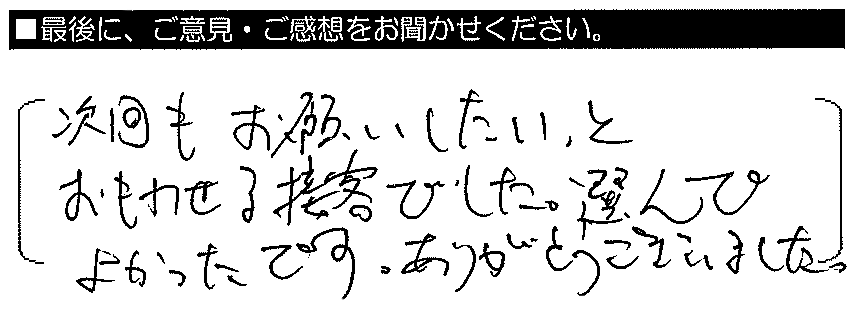 ■最後に、ご意見・ご感想をお聞かせください。
次回もお願いしたい、と
おもわせる接客でした。選んで
よかったです。ありがとうございました。